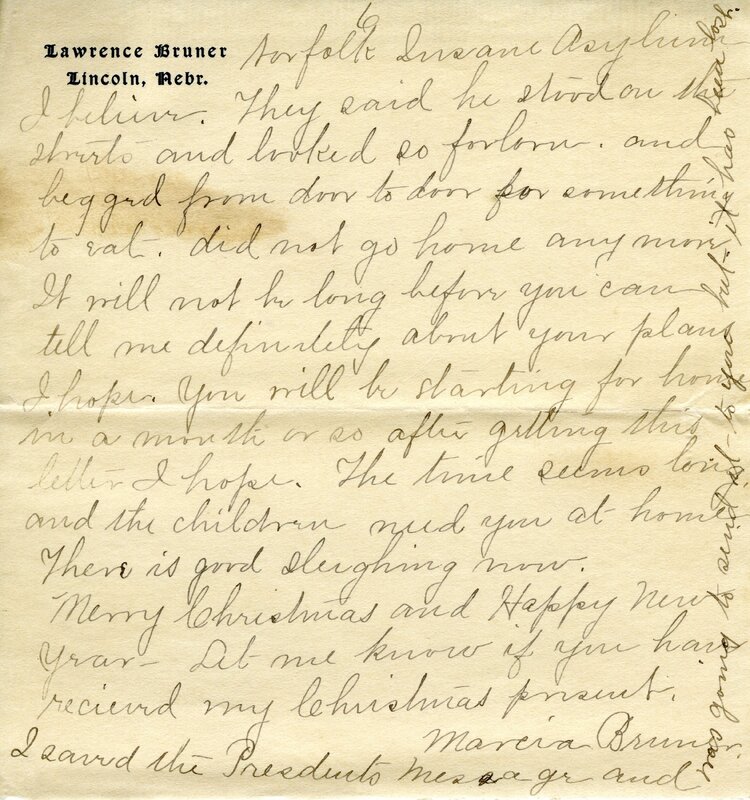 6
Lawrence Bruner
Lincoln, Nebr.
Norfolk Insane Asylum
I believe. They said he stood on the
streets and looked so forlorn. and
begged from door to door for something
to eat. did not go home any more
It will not be long before you can
tell me definitely about your plans
I hope. You will be starting for home
in a month or so after getting this
letter I hope. The time seems long
and the children need you at home
There is good sleighing now.
Merry Christmas and Happy New
Year - Let me know if you have
recieved my Christmas present.
Marcia Bruner.
I saved the Presdents Message and
was going to send it to you but it has been lost.